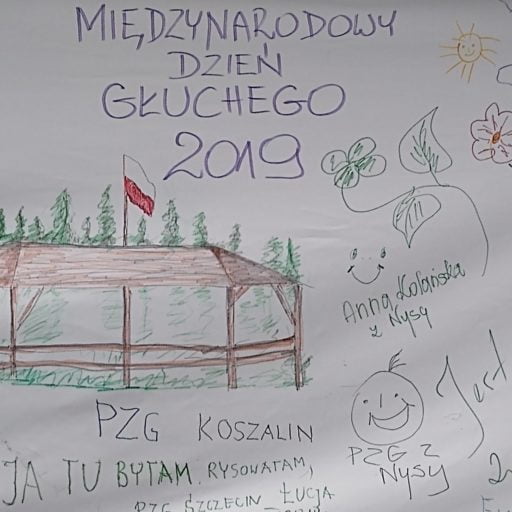 MIĘDZYNARODOWY
DZIEŃ
GŁUCHEGO
2019
Anna
z Nysy
PZG KOSZALIN
PZG Z
NYSY
Jest
JA TU BYŁAM. RYSOWAŁAM,
PZG SZCZECIN ŁUCJA